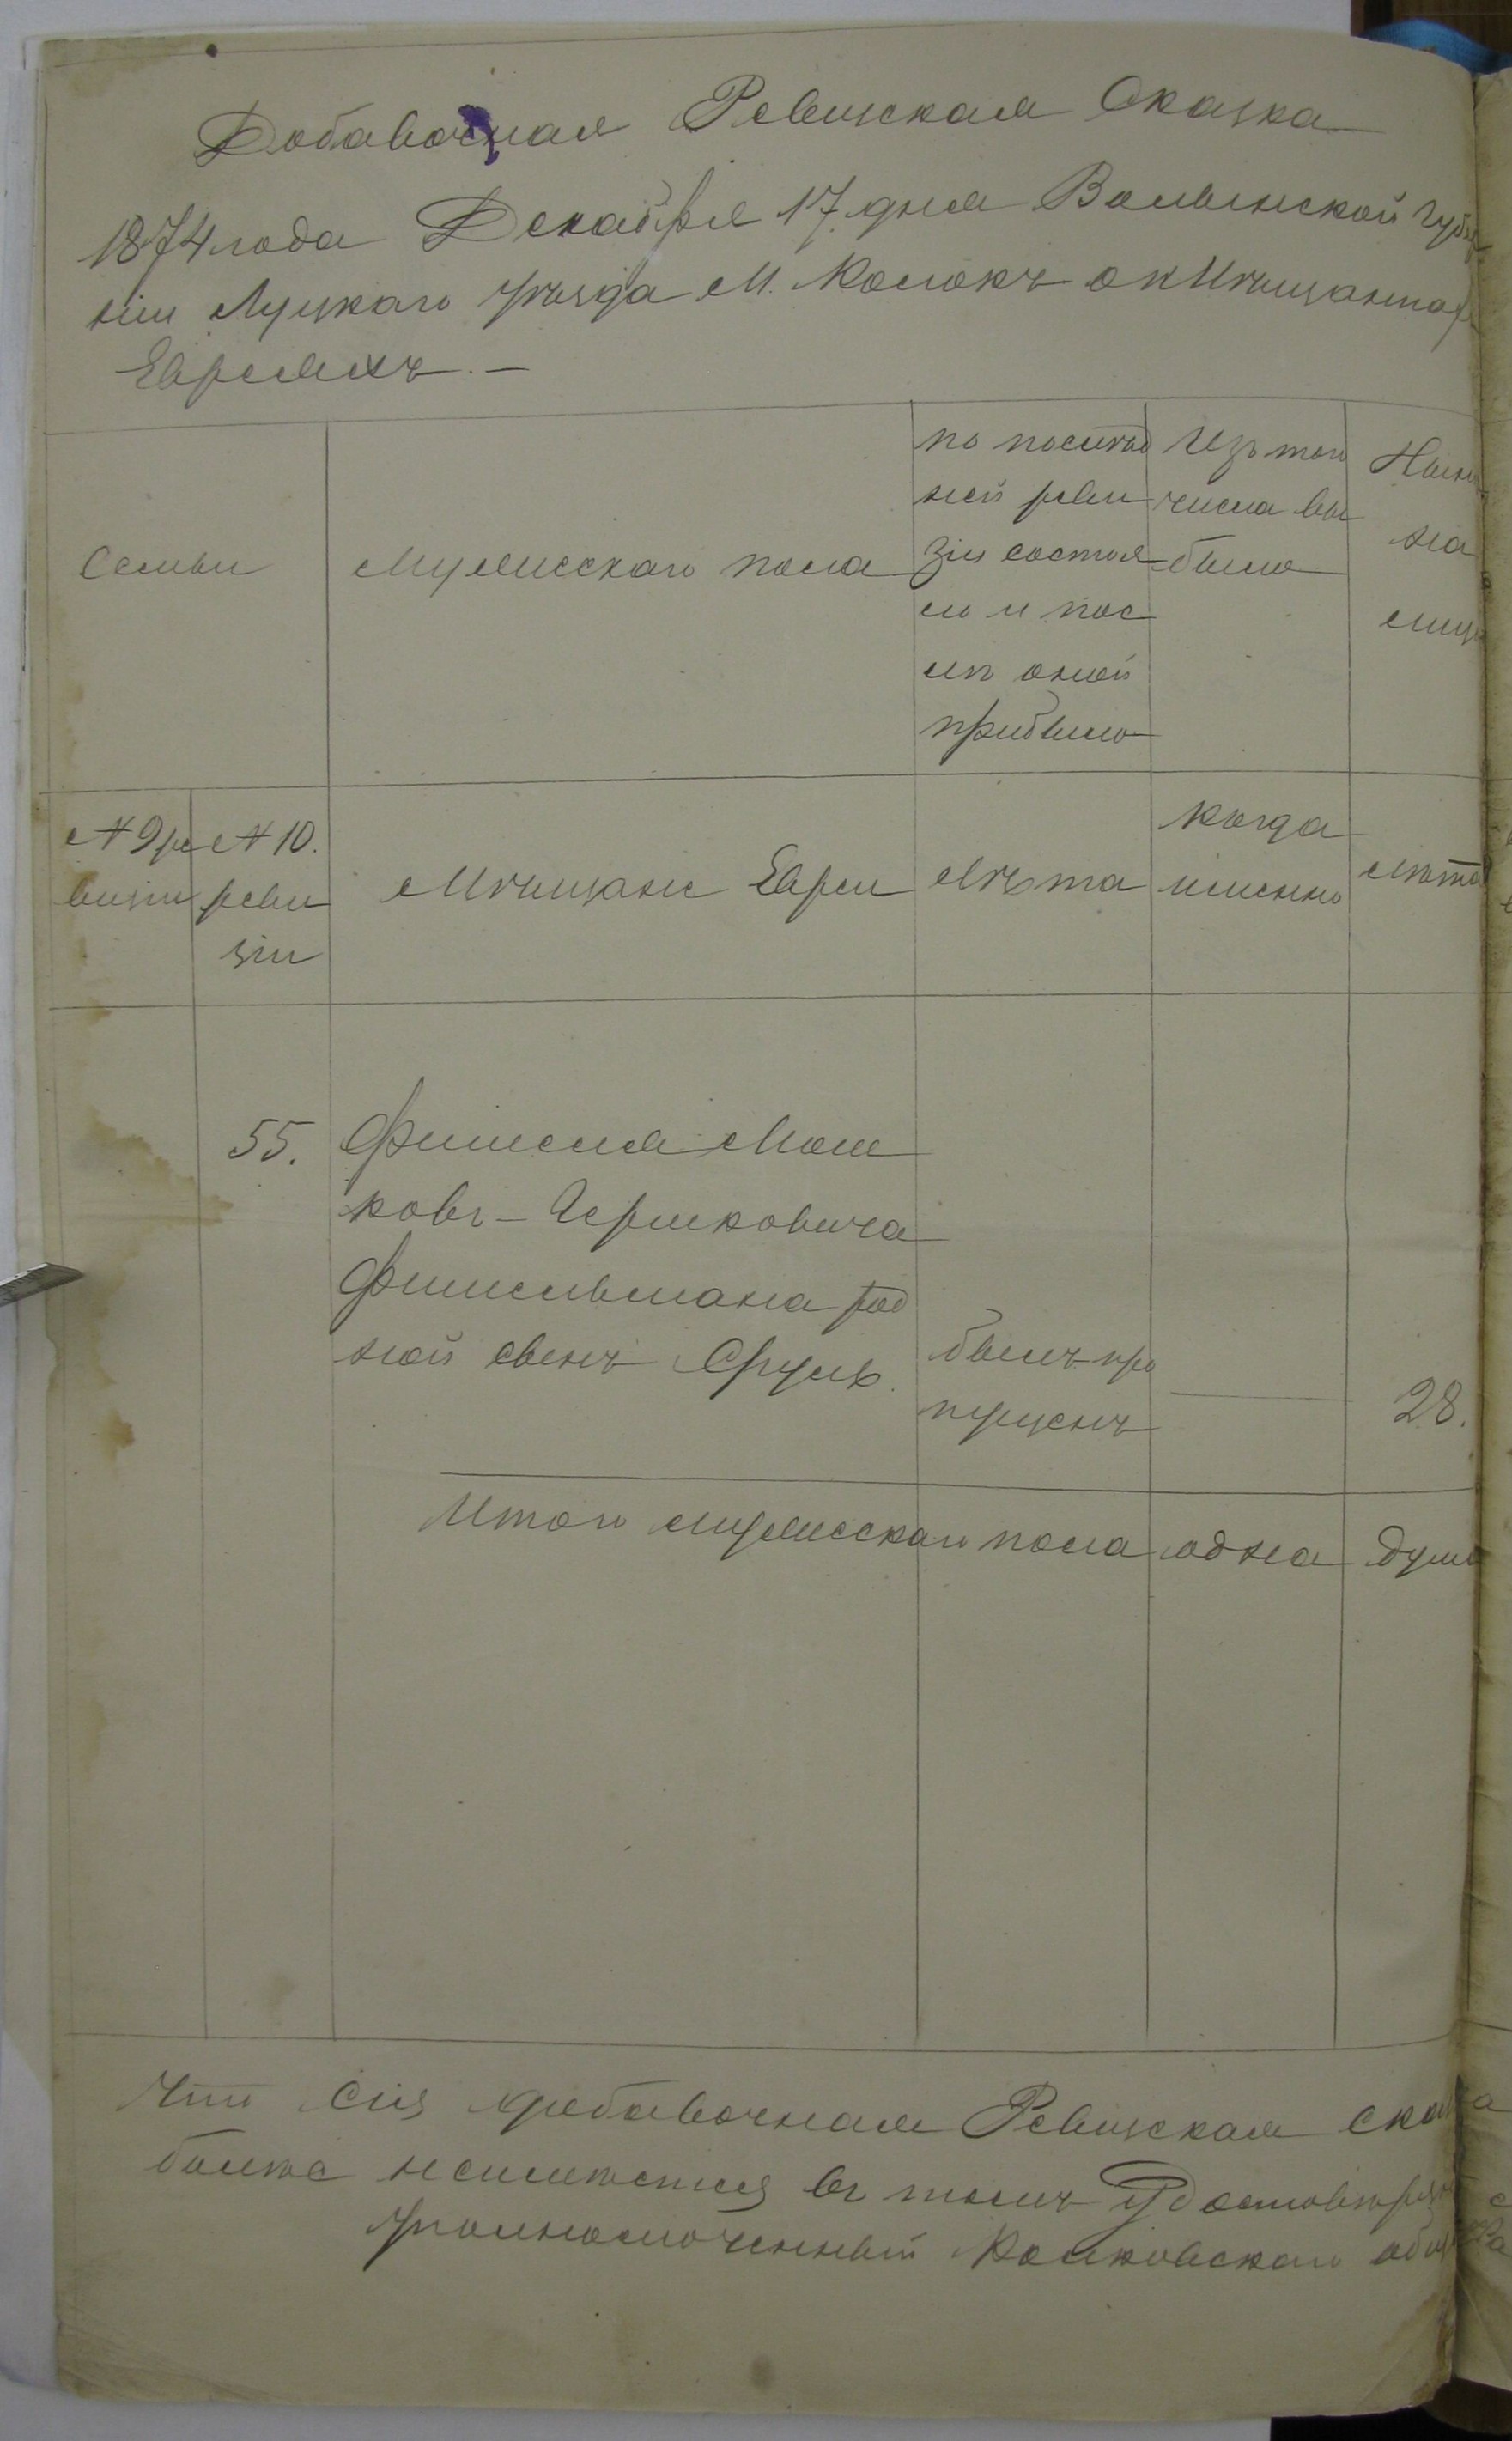 Добавочная Ревизская Сказка
1874 года Декабря 17 дня Волынской Губер
нии Луцкаго уѣзда М. Колокъ о Мѣщанахъ
Евреяхъ. —
Семьи
Мужескаго пола
по послѣд
ней реви
зіи состоя
ло и пос
лѣ оной
прибыло
Изъ того
числа вы
было
Нынѣ
на
лицо
№ 9 ре
визіи
№ 10.
реви
зіи
Мѣщане Евреи
Лѣта
когда
именно
Лѣта
55.
Фишеля Мош
ковъ-Гершковича
Фишельмана род
ной сынъ Сруль.
былъ про
пущенъ
28.
Итого мужескаго пола одна душа
Что сія добавочная Ревизская сказка
болѣе въ томъ Удостовѣряю
Уполномоченный Колковскаго